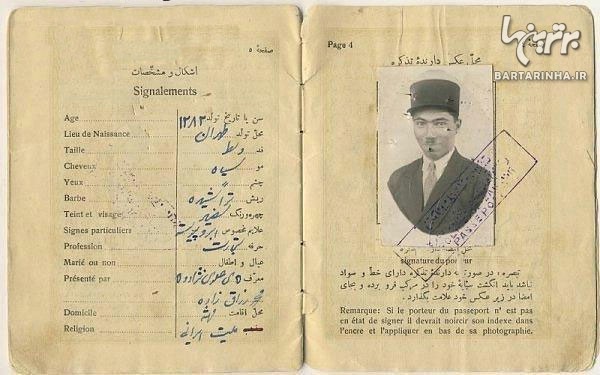 صفحهٔ ۵
اشکال و مشخّصات
Signalements
Age ۱۲۸۳ سن یا تاریخ تولد
Lieu de Naissance طهران محلّ تولد
Taille وسط قد
Cheveux سیاه مو
Yeux چشم
Barbe تراشیده ریش
Teint et visage چهره و رنگ
Signes particuliers ابرو پیوسته علایم مخصوص
Profession تجارت حرفه
Marié ou non عیال و اطفال
Présenté par معرّف
زاده
Domicile محلّ اقامت
Religion ملیت ایرانی مذهب
Page 4
محلّ عکس دارندهٔ تذکره
برترینها
BARTARINHA.IR
PASSEPORT
signature du porteur
تبصره، در صورتیکه دارندهٔ تذکره دارای خطّ و سواد
نباشد باید انگشت سبّابهٔ خود را در مرکّب فرو برده و بجای
امضا در زیر عکس خود علامت بگذارد.
Remarque: Si le porteur du passeport n' est pas
en état de signer il devrait noircir son indexe dans
l'encre et l'appliquer en bas de sa photographie.